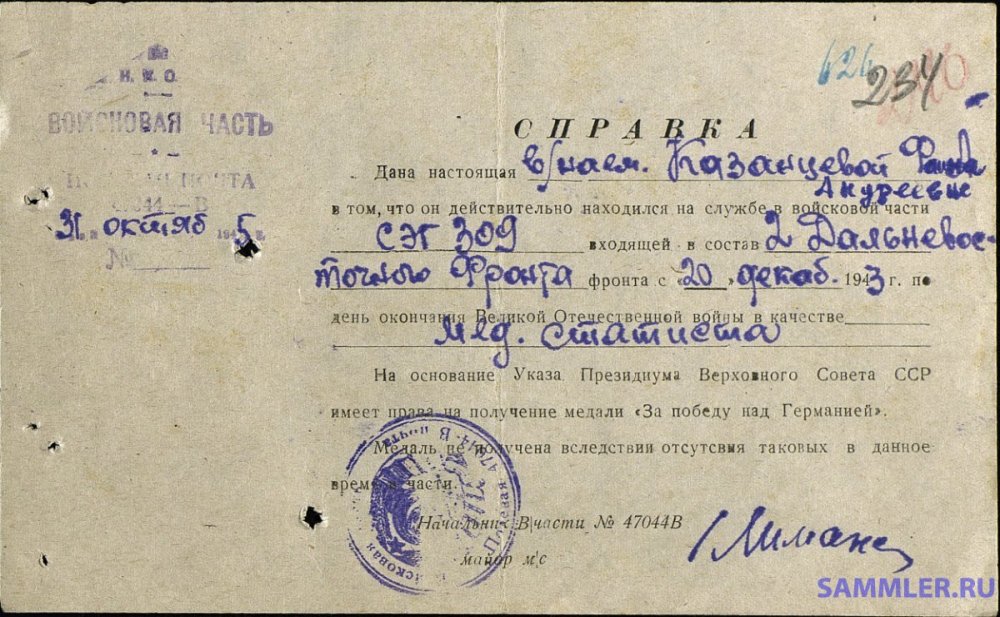 Н. К. О.
ВОЙСКОВАЯ ЧАСТЬ
ПОЧТА
44—В
31 октяб 1945 г.
№
626
234
СПРАВКА
Дана настоящая в/наем. Казанцевой
Андреевне
в том, что он действительно находился на службе в войсковой части
СЭГ 309 входящей в состав 2 Дальневос-
точного Фронта фронта с «20» декаб. 1943 г. по
день окончания Великой Отечественной войны в качестве
Мед. статиста
На основание Указа Президиума Верховного Совета ССР
имеет права на получение медали «За победу над Германией».
Медаль не получена вследствии отсутсвия таковых в данное
время в части.
Начальник В части № 47044В
майор м/с
SAMMLER.RU